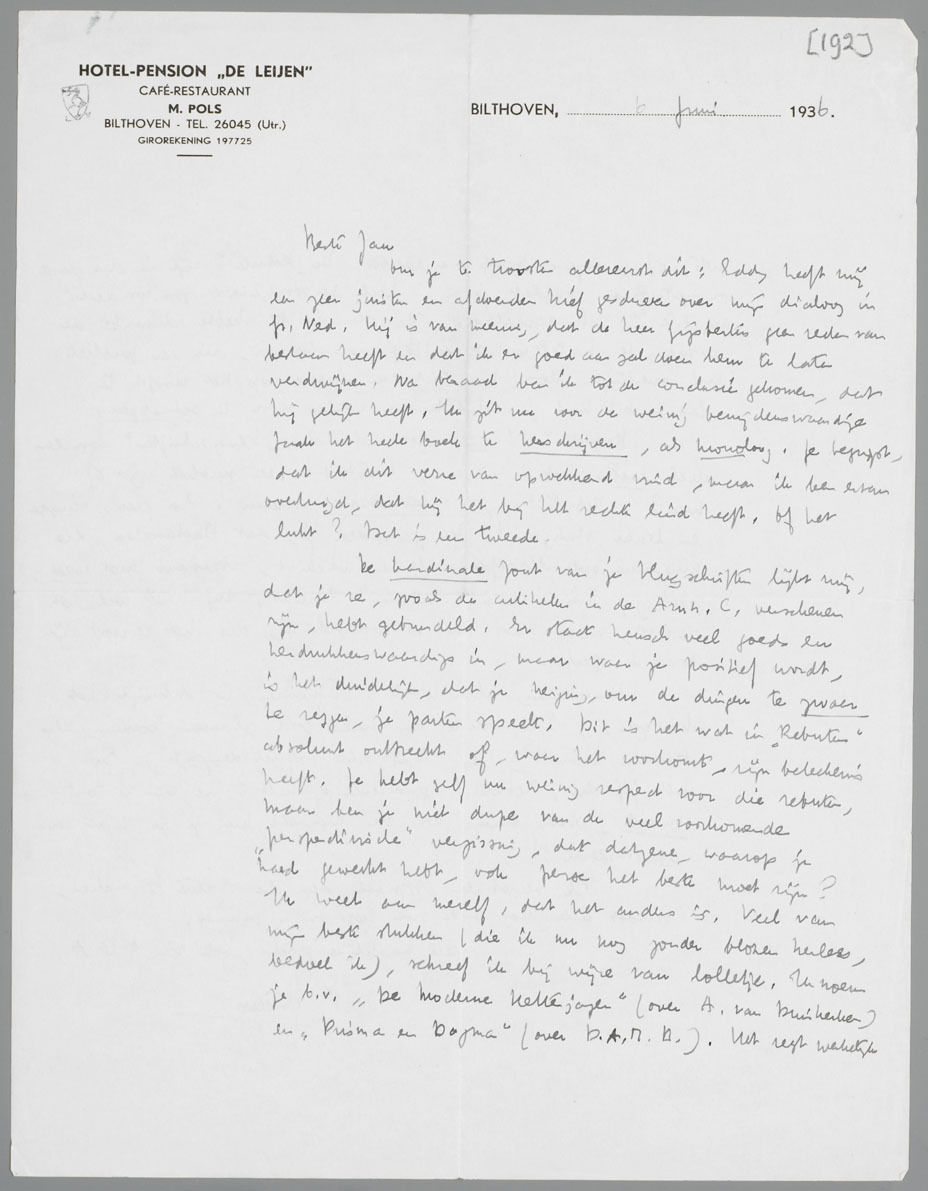 [192]
HOTEL-PENSION „DE LEIJEN”
CAFÉ-RESTAURANT
M. POLS
BILTHOVEN - TEL. 26045 (Utr.)
GIROREKENING 197725
BILTHOVEN, 6 Juni 1936.
Beste Jan
Om je te troosten allereerst dit: Eddy heeft mij
een zeer juisten en afdoenden brief geschreven over mijn dialoog in
Gr. Ned. Hij is van meening, dat de heer Gijsbertus geen reden van
bestaan heeft en dat ik er goed aan zal doen hem te laten
verdwijnen. Na beraad ben ik tot de conclusie gekomen, dat
hij gelijk heeft. Ik zit nu voor de weinig benijdenswaardige
taak het heele boek te herschrijven, als monoloog. Je begrijpt,
dat ik dit verre van opwekkend vind, maar ik ben ervan
overtuigd, dat hij het bij het rechte eind heeft. Of het
lukt? Dat is een tweede.
De kardinale fout van je vlugschriften lijkt mij,
dat je ze, zooals de artikelen in de Arnh. C. verschenen
zijn, hebt gebundeld. Er stak heusch veel goeds en
herdrukkenswaardigs in, maar waar je positief wordt,
is het duidelijk, dat je neiging, om de dingen te zwaar
te zeggen, je parten speelt. Dit is het wat in „Rebuten”
absoluut ontbreekt of, waar het voorkomt, zijn beteekenis
heeft. Je hebt zelf nu weinig respect voor die rebuten,
maar ben je niet dupe van de veel voorkomende
„perspectivische” vergissing, dat datgene, waarop je
hard gewerkt hebt, ook perse het beste moet zijn?
Ik weet aan mezelf, dat het anders is. Veel van
mijn beste stukken (die ik nu nog zonder blozen herlees,
bedoel ik), schreef ik bij wijze van lolletje. Ik noem
je b.v. „De Moderne Ketterjager” (over A. van Duinkerken)
en „Prisma en Dogma” (over D.A.M. B.). Het zegt werkelijk